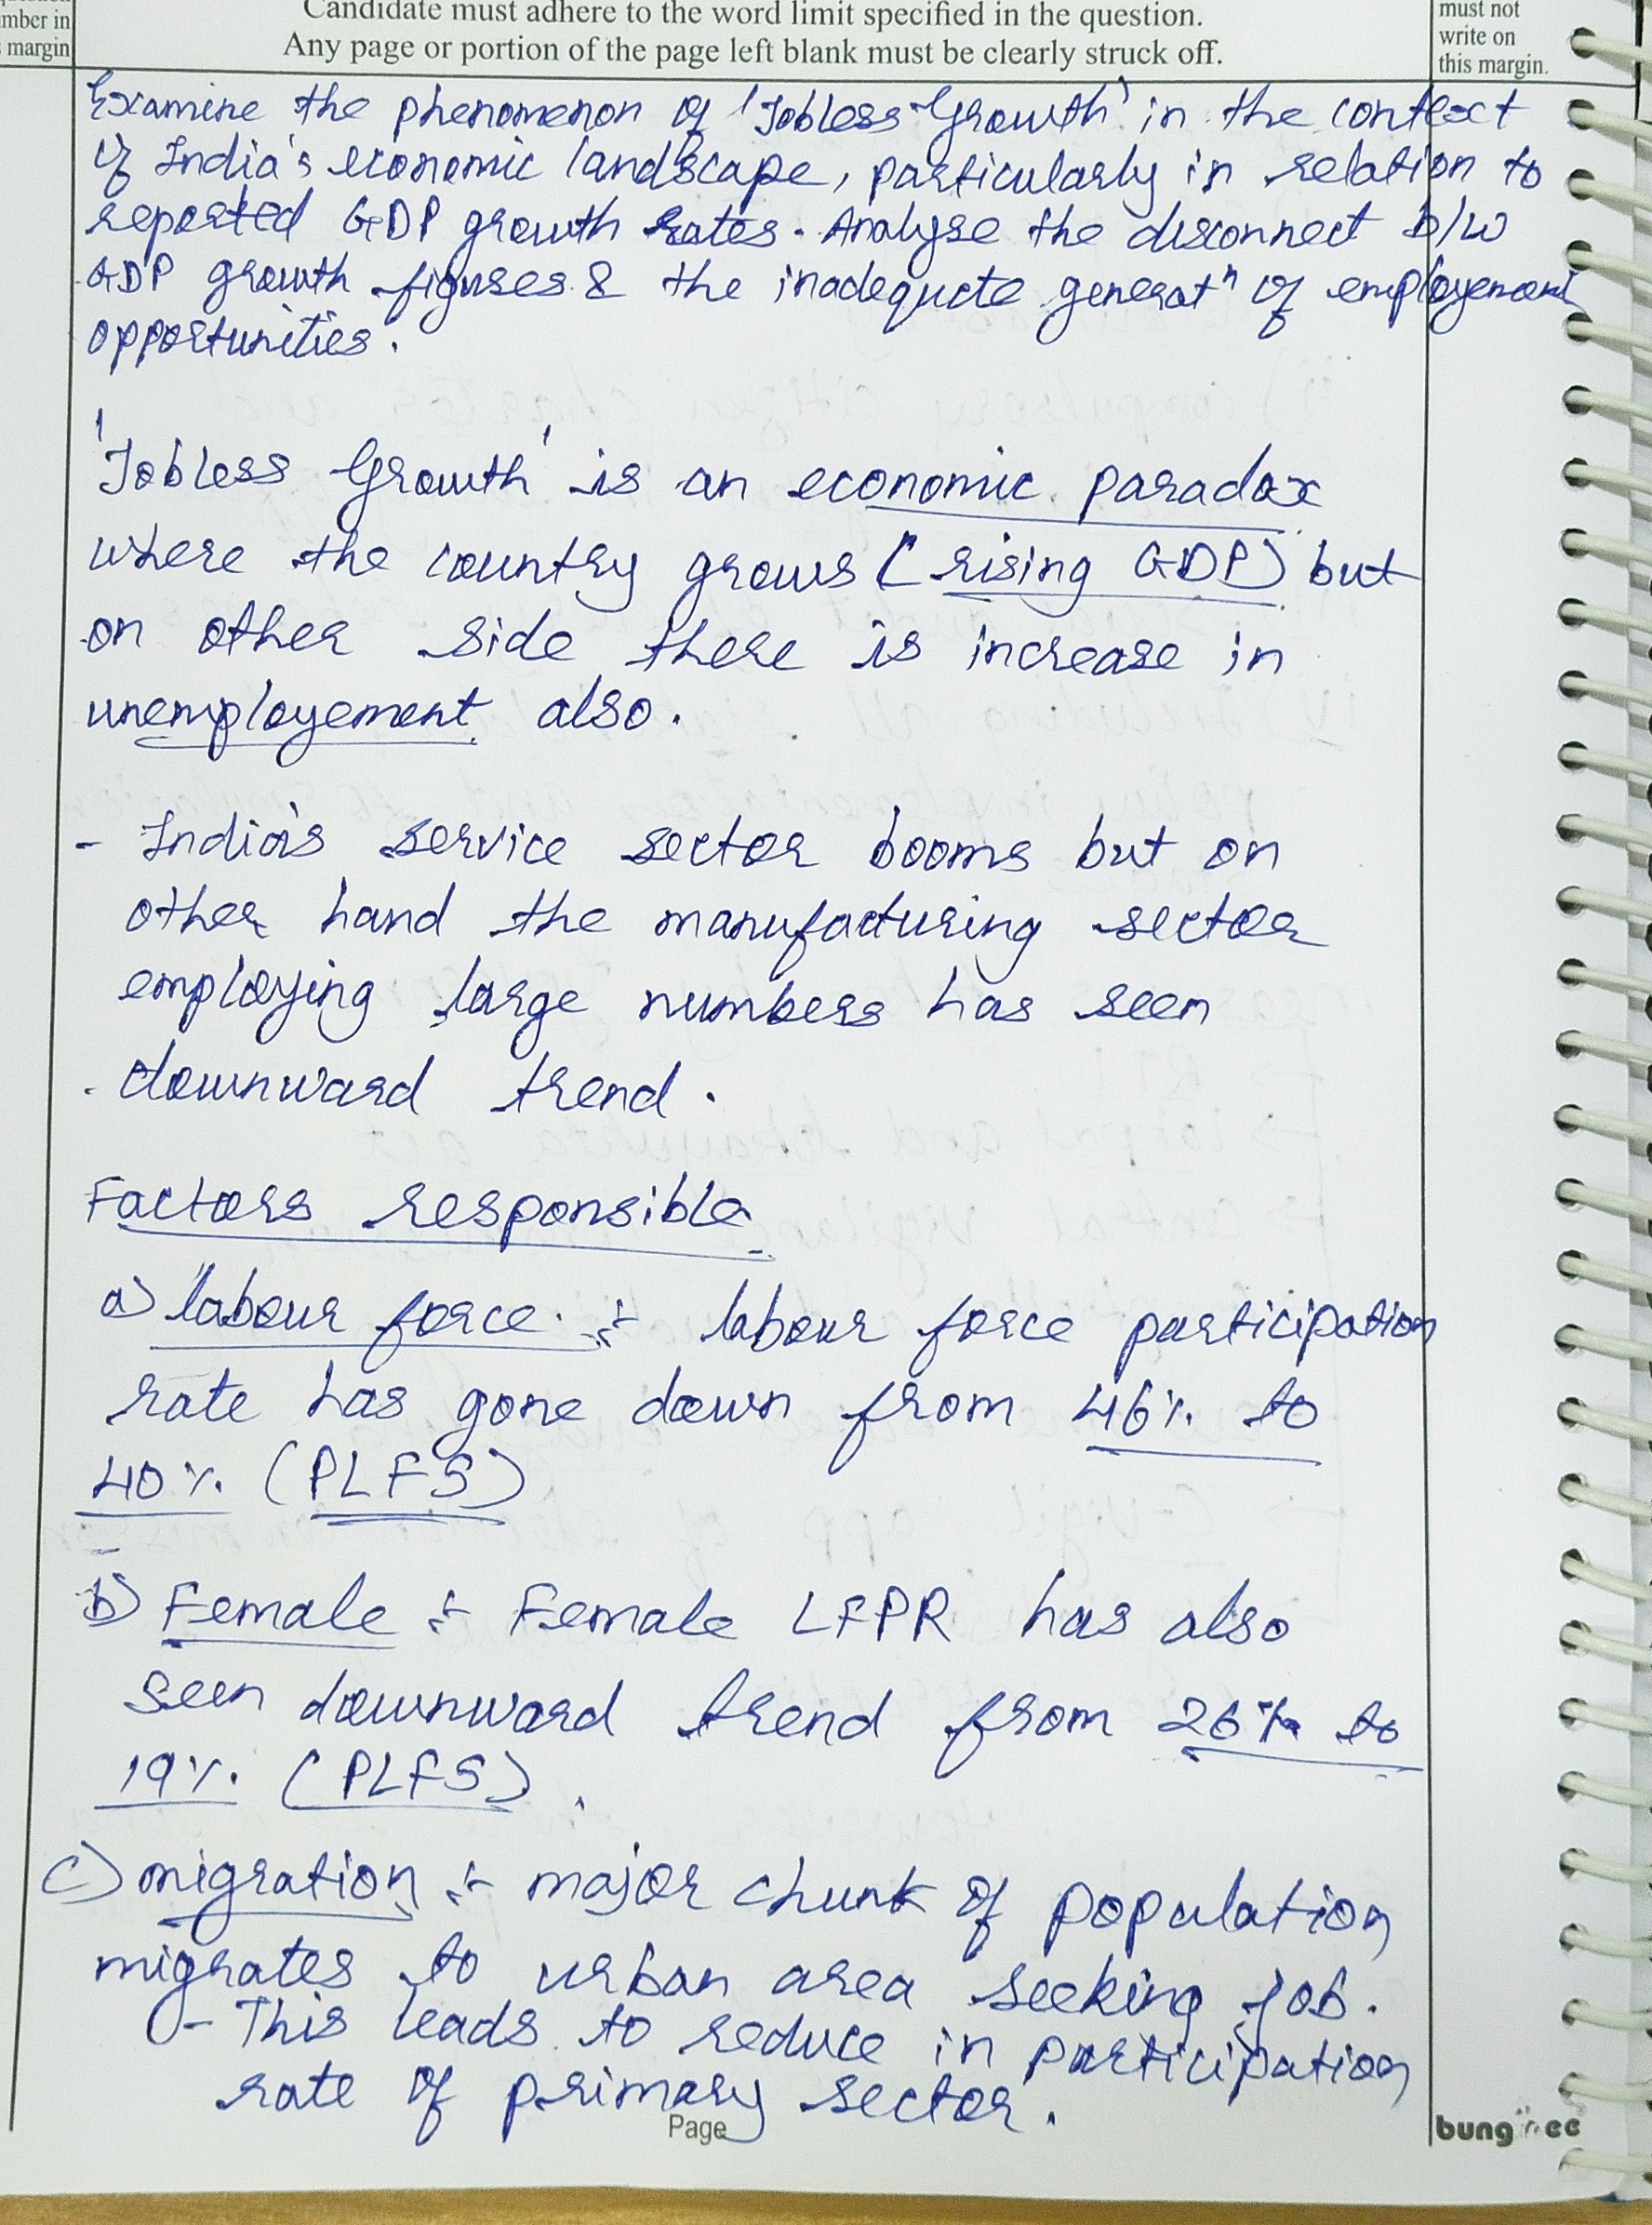 mber in
margin
Candidate must adhere to the word limit specified in the question.
Any page or portion of the page left blank must be clearly struck off.
must not
write on
this margin.
Examine the phenomenon of 'Jobless Growth' in the context
of India's economic landscape, particularly in relation to
reported GDP growth rates. Analyse the disconnect b/w
GDP growth figures & the inadequate generatⁿ of employement
opportunities.
'Jobless Growth' is an economic paradox
where the country grows (rising GDP) but
on other side there is increase in
unemployement also.
- India's service sector booms but on
other hand the manufacturing sector
employing large numbers has seen
downward trend.
Factors responsible
a) labour force :- labour force participation
rate has gone down from 46% to
40% (PLFS)
b) Female :- Female LFPR has also
seen downward trend from 26% to
19% (PLFS).
c) migration :- major chunk of population
migrates to urban area seeking job.
- This leads to reduce in participation
rate of primary sector.
Page